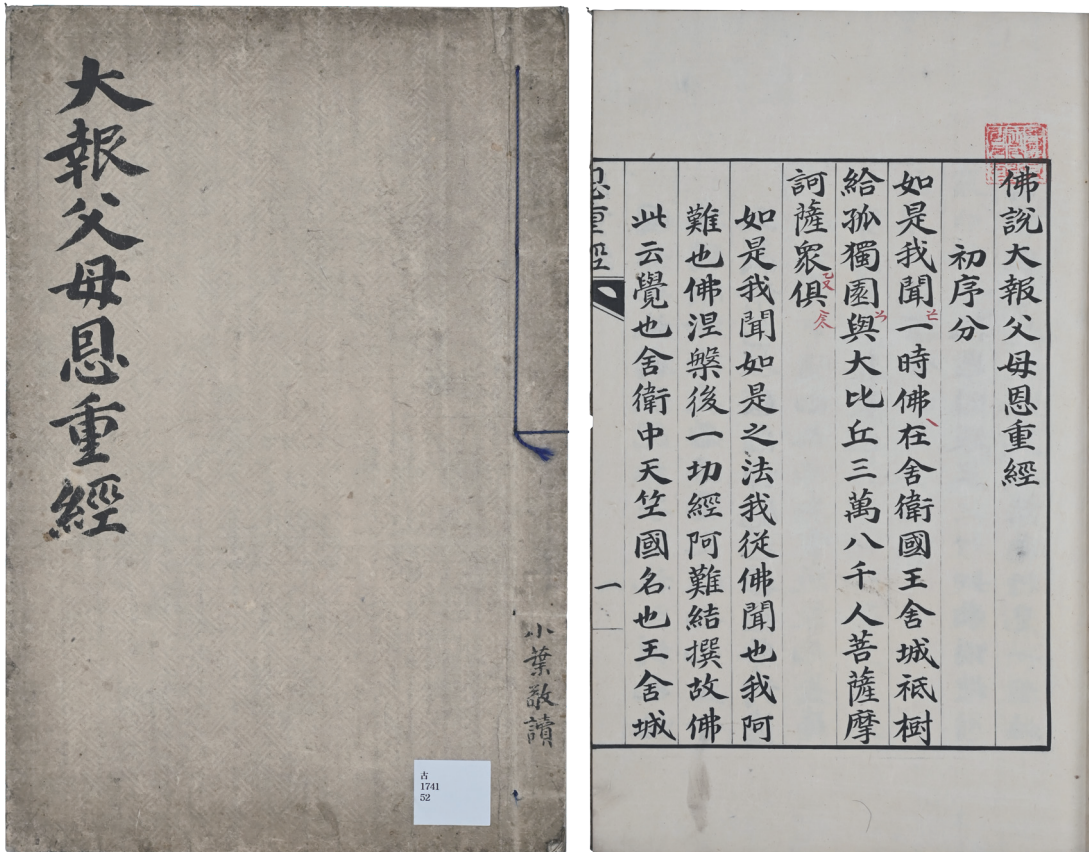 大報父母恩重經
小葉敬讀
古
1741
52
佛說大報父母恩重經
初序分
如是我聞一時佛在舍衛國王舍城祗樹
給孤獨園與大比丘三萬八千人菩薩摩
訶薩衆俱
如是我聞如是之法我従佛聞也我阿
難也佛涅槃後一切經阿難結撰故佛
此云覺也舍衛中天竺國名也王舍城
恩重經
一